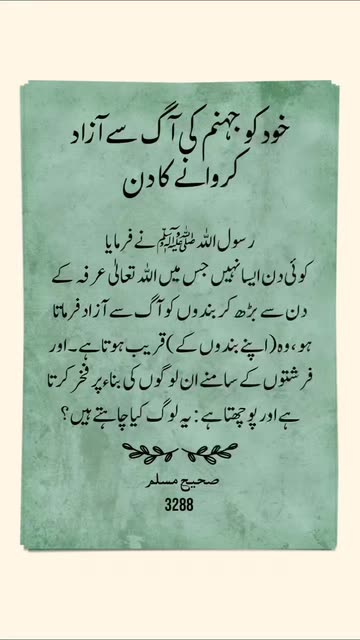 خود کو جہنم کی آگ سے آزاد
کروانے کا دن
رسول اللہ ﷺ نے فرمایا
کوئی دن ایسا نہیں جس میں اللہ تعالیٰ عرفہ کے
دن سے بڑھ کر بندوں کو آگ سے آزاد فرماتا
ہو، وہ (اپنے بندوں کے) قریب ہوتا ہے۔ اور
فرشتوں کے سامنے ان لوگوں کی بناء پر فخر کرتا
ہے اور پوچھتا ہے: یہ لوگ کیا چاہتے ہیں؟
صحیح مسلم
3288